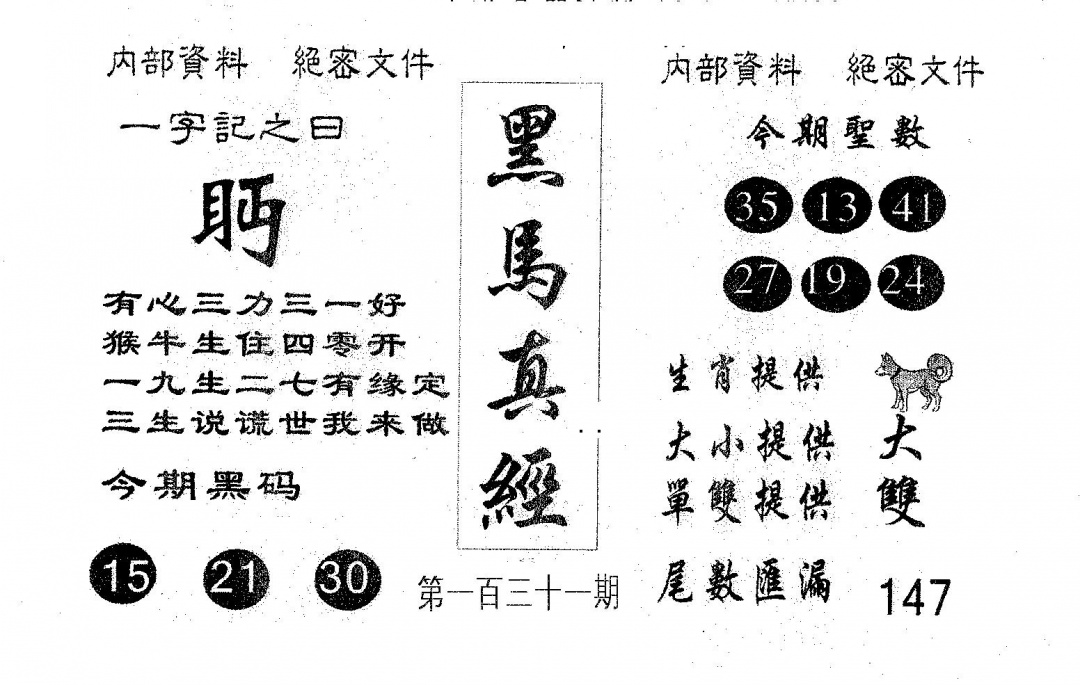 内部資料 絕密文件
一字記之曰
眄
有心三力三一好
猴牛生住四零开
一九生二七有缘定
三生说谎世我来做
今期黑码
15 21 30
黑馬真經
第一百三十一期
内部資料 絕密文件
今期聖數
35 13 41
27 19 24
生肖提供
大小提供 大
單雙提供 雙
尾數匯漏 147